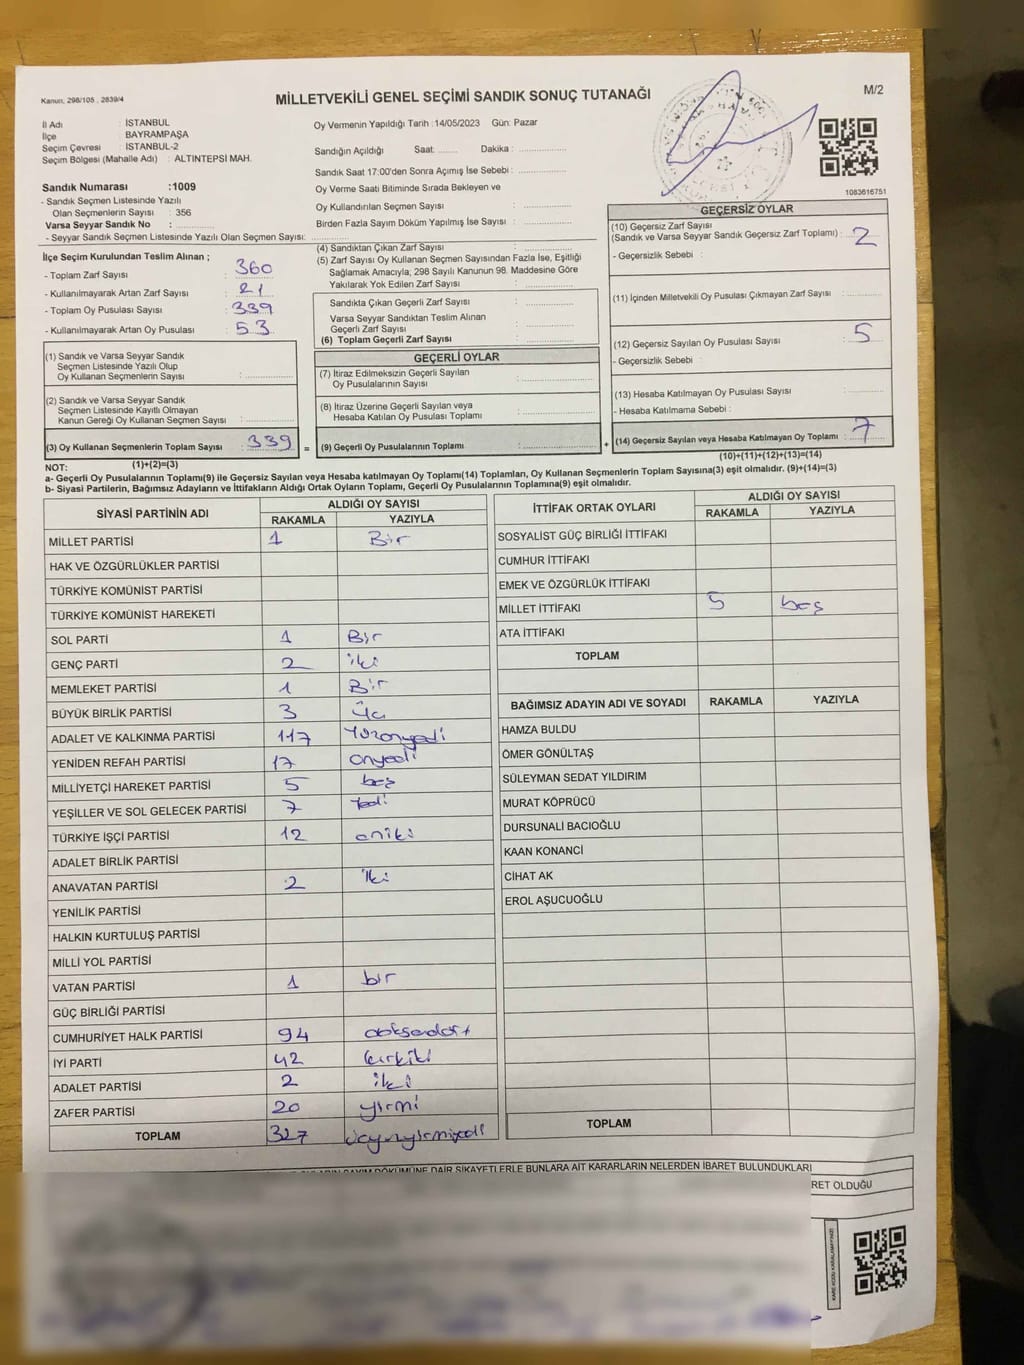 Kanun, 298/105 , 2839/4
MİLLETVEKİLİ GENEL SEÇİMİ SANDIK SONUÇ TUTANAĞI
M/2
İl Adı : İSTANBUL
İlçe : BAYRAMPAŞA
Seçim Çevresi : İSTANBUL-2
Seçim Bölgesi (Mahalle Adı) : ALTINTEPSİ MAH.
Sandık Numarası :1009
- Sandık Seçmen Listesinde Yazılı
Olan Seçmenlerin Sayısı : 356
Varsa Seyyar Sandık No :
- Seyyar Sandık Seçmen Listesinde Yazılı Olan Seçmen Sayısı:
Oy Vermenin Yapıldığı Tarih :14/05/2023 Gün: Pazar
Sandığın Açıldığı Saat: Dakika :
Sandık Saat 17:00'den Sonra Açımış İse Sebebi :
Oy Verme Saati Bitiminde Sırada Bekleyen ve
Oy Kullandırılan Seçmen Sayısı :
Birden Fazla Sayım Döküm Yapılmış İse Sayısı :
1083616751
İlçe Seçim Kurulundan Teslim Alınan ;
- Toplam Zarf Sayısı : 360
- Kullanılmayarak Artan Zarf Sayısı : 21
- Toplam Oy Pusulası Sayısı : 339
- Kullanılmayarak Artan Oy Pusulası : 53
(1) Sandık ve Varsa Seyyar Sandık
Seçmen Listesinde Yazılı Olup
Oy Kullanan Seçmenlerin Sayısı :
(2) Sandık ve Varsa Seyyar Sandık
Seçmen Listesinde Kayıtlı Olmayan
Kanun Gereği Oy Kullanan Seçmen Sayısı :
(3) Oy Kullanan Seçmenlerin Toplam Sayısı : 339
(1)+(2)=(3)
(4) Sandıktan Çıkan Zarf Sayısı :
(5) Zarf Sayısı Oy Kullanan Seçmen Sayısından Fazla İse, Eşitliği
Sağlamak Amacıyla, 298 Sayılı Kanunun 98. Maddesine Göre
Yakılarak Yok Edilen Zarf Sayısı :
Sandıkta Çıkan Geçerli Zarf Sayısı :
Varsa Seyyar Sandıktan Teslim Alınan
Geçerli Zarf Sayısı :
(6) Toplam Geçerli Zarf Sayısı :
GEÇERLİ OYLAR
(7) İtiraz Edilmeksizin Geçerli Sayılan
Oy Pusulalarının Sayısı :
(8) İtiraz Üzerine Geçerli Sayılan veya
Hesaba Katılan Oy Pusulası Toplamı :
= (9) Geçerli Oy Pusulalarının Toplamı :
GEÇERSİZ OYLAR
(10) Geçersiz Zarf Sayısı
(Sandık ve Varsa Seyyar Sandık Geçersiz Zarf Toplamı) : 2
- Geçersizlik Sebebi :
(11) İçinden Milletvekili Oy Pusulası Çıkmayan Zarf Sayısı :
(12) Geçersiz Sayılan Oy Pusulası Sayısı : 5
- Geçersizlik Sebebi :
(13) Hesaba Katılmayan Oy Pusulası Sayısı :
- Hesaba Katılmama Sebebi :
+ (14) Geçersiz Sayılan veya Hesaba Katılmayan Oy Toplamı : 7
(10)+(11)+(12)+(13)=(14)
NOT:
a- Geçerli Oy Pusulalarının Toplamı(9) ile Geçersiz Sayılan veya Hesaba katılmayan Oy Toplamı(14) Toplamları, Oy Kullanan Seçmenlerin Toplam Sayısına(3) eşit olmalıdır. (9)+(14)=(3)
b- Siyasi Partilerin, Bağımsız Adayların ve İttifakların Aldığı Ortak Oyların Toplamı, Geçerli Oy Pusulalarının Toplamına(9) eşit olmalıdır.
SİYASİ PARTİNİN ADI ALDIĞI OY SAYISI
RAKAMLA YAZIYLA
MİLLET PARTİSİ 1 Bir
HAK VE ÖZGÜRLÜKLER PARTİSİ
TÜRKİYE KOMÜNİST PARTİSİ
TÜRKİYE KOMÜNİST HAREKETİ
SOL PARTİ 1 Bir
GENÇ PARTİ 2 iki
MEMLEKET PARTİSİ 1 Bir
BÜYÜK BİRLİK PARTİSİ 3 Üç
ADALET VE KALKINMA PARTİSİ 117 Yüzonyedi
YENİDEN REFAH PARTİSİ 17 onyedi
MİLLİYETÇİ HAREKET PARTİSİ 5 beş
YEŞİLLER VE SOL GELECEK PARTİSİ 7 Yedi
TÜRKİYE İŞÇİ PARTİSİ 12 oniki
ADALET BİRLİK PARTİSİ
ANAVATAN PARTİSİ 2 İki
YENİLİK PARTİSİ
HALKIN KURTULUŞ PARTİSİ
MİLLİ YOL PARTİSİ
VATAN PARTİSİ 1 bir
GÜÇ BİRLİĞİ PARTİSİ
CUMHURİYET HALK PARTİSİ 94 doksandört
İYİ PARTİ 42 kırkiki
ADALET PARTİSİ 2 iki
ZAFER PARTİSİ 20 yirmi
TOPLAM 327 üçyüzyirmiyedi
İTTİFAK ORTAK OYLARI ALDIĞI OY SAYISI
RAKAMLA YAZIYLA
SOSYALİST GÜÇ BİRLİĞİ İTTİFAKI
CUMHUR İTTİFAKI
EMEK VE ÖZGÜRLÜK İTTİFAKI
MİLLET İTTİFAKI 5 beş
ATA İTTİFAKI
TOPLAM
BAĞIMSIZ ADAYIN ADI VE SOYADI RAKAMLA YAZIYLA
HAMZA BULDU
ÖMER GÖNÜLTAŞ
SÜLEYMAN SEDAT YILDIRIM
MURAT KÖPRÜCÜ
DURSUNALİ BACIOĞLU
KAAN KONANCİ
CİHAT AK
EROL AŞUCUOĞLU
TOPLAM
SAYIM DÖKÜMÜNE DAİR ŞİKAYETLERLE BUNLARA AİT KARARLARIN NELERDEN İBARET BULUNDUKLARI
RET OLDUĞU
KARE KODU KARALAMAYINIZ!